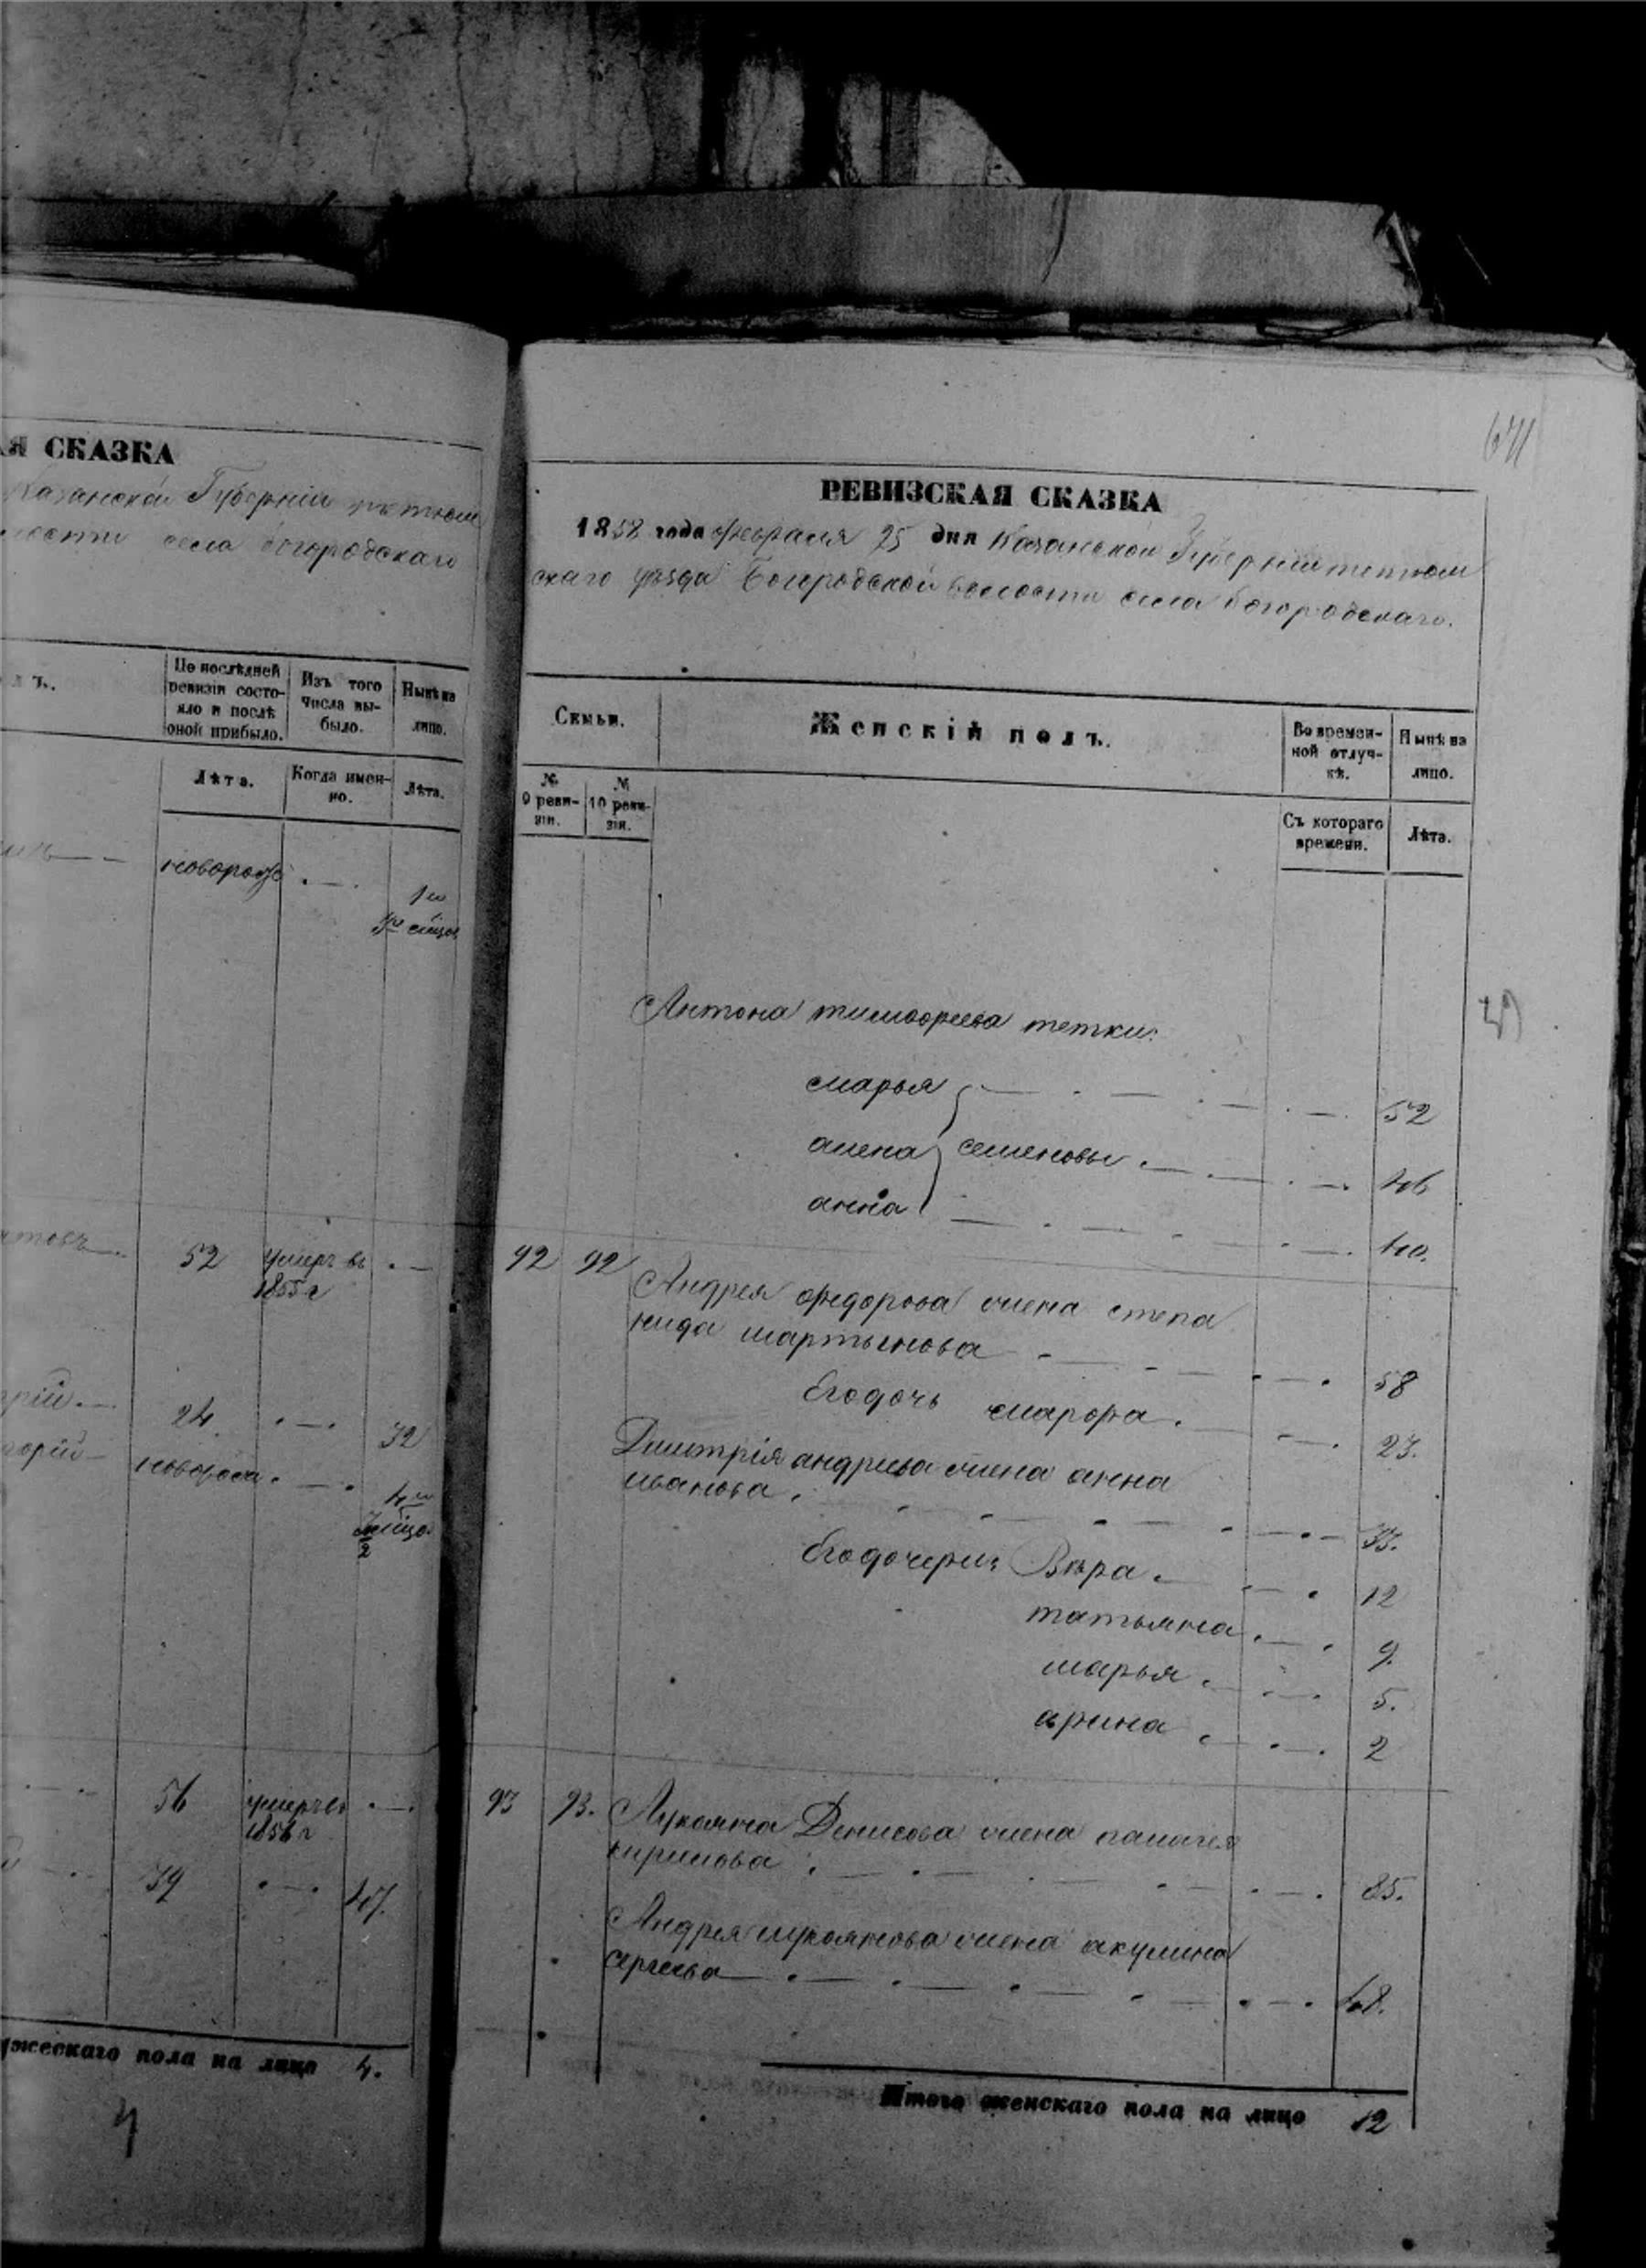 СКАЗКА
Казанской Губерніи тетюш
села богородскаго
лъ.
По послѣдней ревизіи состо-
яло и послѣ
оной прибыло.
Изъ того
числа вы-
было.
Нынѣ на
лицо.
Лѣта.
Когда имен-
но.
Лѣта.
новорож
52 умеръ въ
1855 г
24 32
новорож
56 умеръ въ
1856 г
39 47.
мужескаго пола на лицо 4.
РЕВИЗСКАЯ СКАЗКА
1858 года февраля 25 дня Казанской Губерніи тетюш
скаго уѣзда Богородской волости села богородскаго.
Семьи.
Женскій полъ.
Во времен-
ной отлуч-
кѣ.
Нынѣ на
лицо.
№
9 реви-
зіи.
№
10 реви-
зіи.
Съ котораго
времени.
Лѣта.
Антона тимофеева тетки:
марья 52
алена семеновы 46
анна 40.
92 92 Андрея федорова жена степа
нида мартынова 58
Его дочь марфа 23.
Дмитрія андриева жена анна
иванова 33.
Его дочери: Вѣра 12
татьяна 9.
марья 5.
арина 2
93 93. Лукояна Денисова жена палагея
кирилова 85.
Андрея лукоянова жена акулина
сергеева 48.
Итого женскаго пола на лицо 12